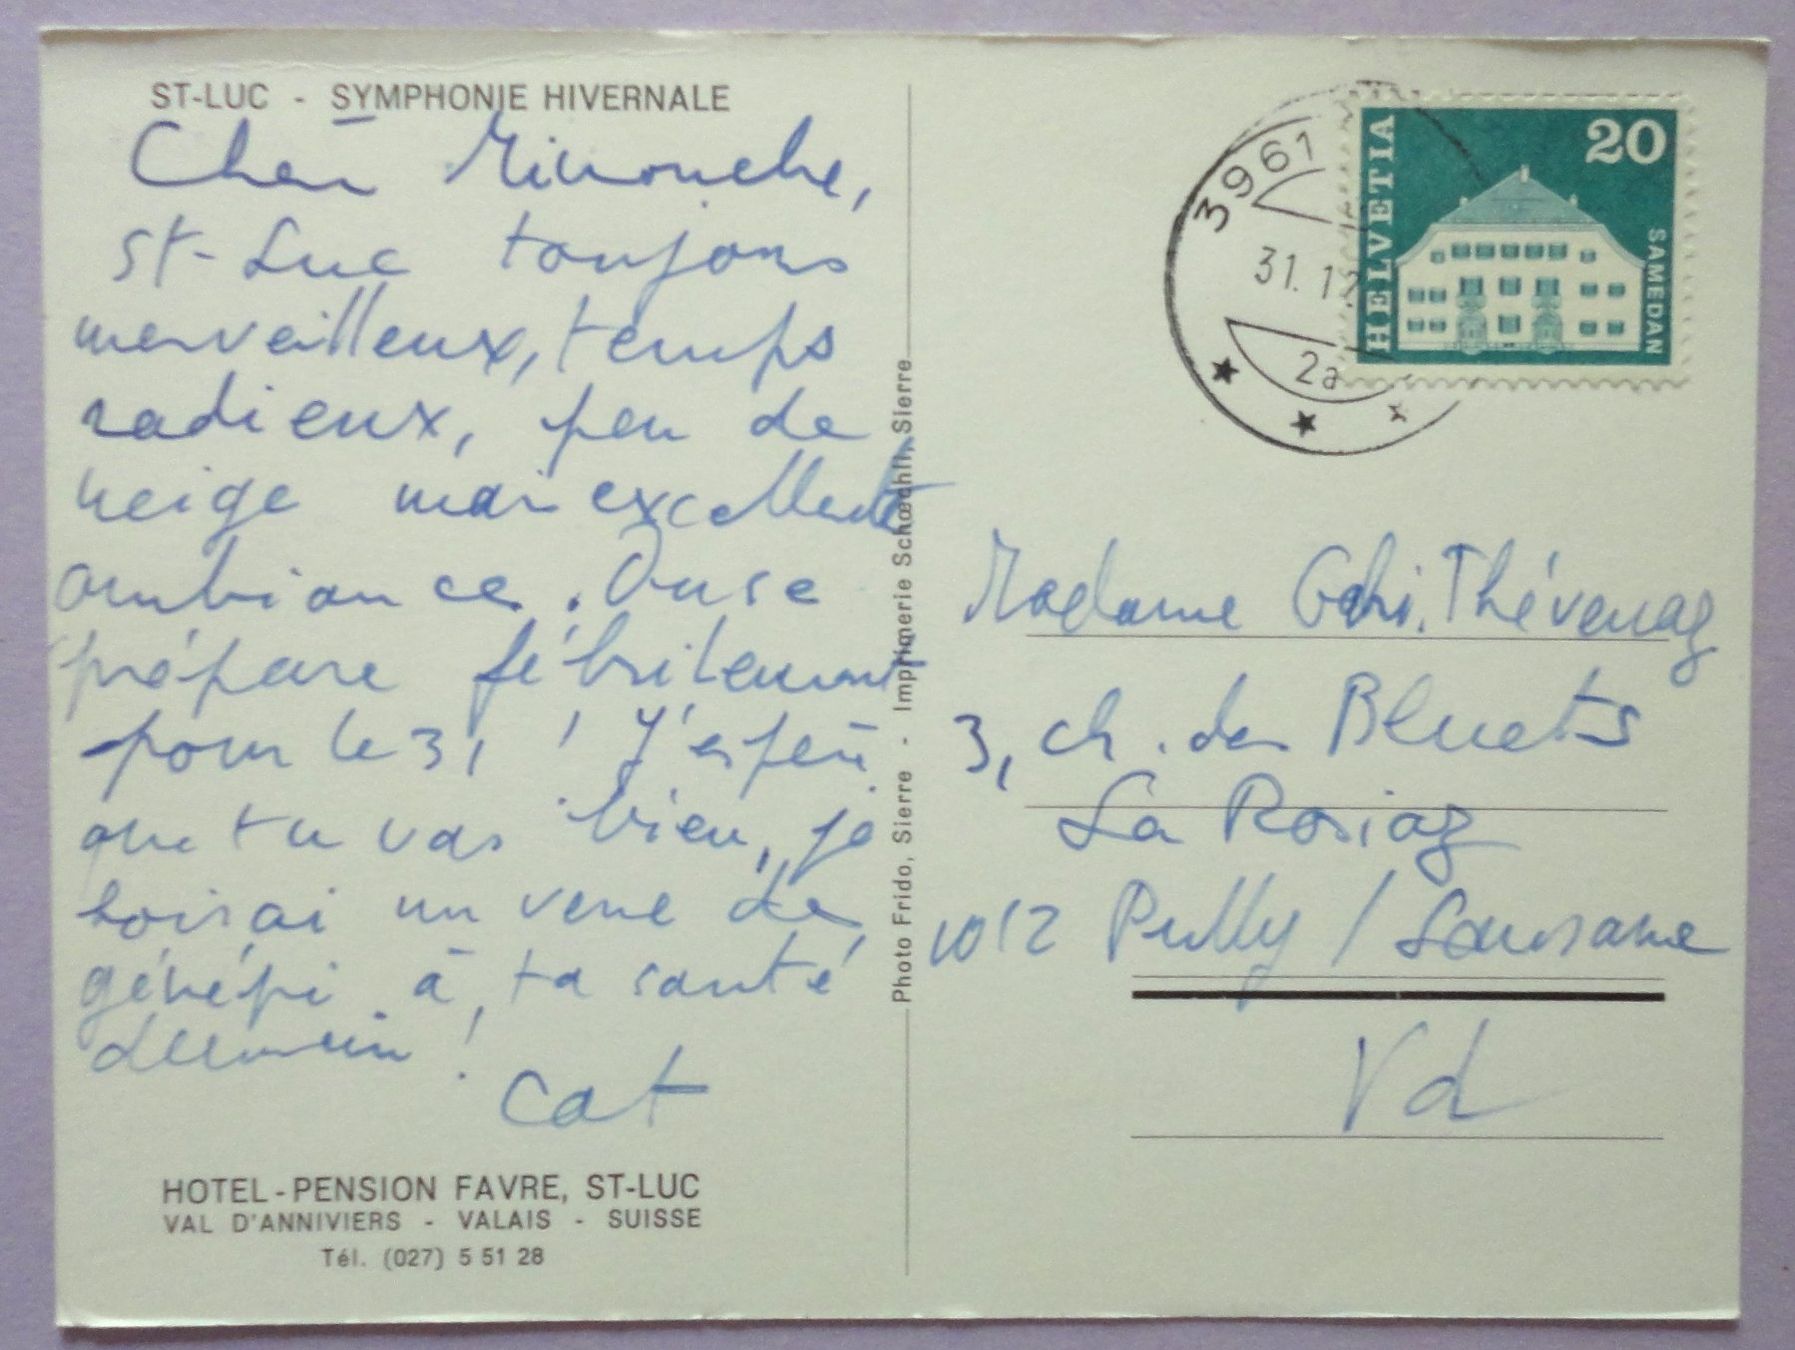 ST-LUC - SYMPHONIE HIVERNALE
Chère Minouche,
St-Luc toujours
merveilleux, temps
radieux, peu de
neige mais excellente
ambiance. On se
prépare fébrilement
pour le 31 ! J'espère
que tu vas bien, je
boirai un verre de
génépi à ta santé
demain !
Cat
HOTEL-PENSION FAVRE, ST-LUC
VAL D'ANNIVIERS - VALAIS - SUISSE
Tél. (027) 5 51 28
Photo Frido, Sierre - Imprimerie Schœchli, Sierre
3961
31. 12
2a
HELVETIA
20
SAMEDAN
Madame Thévenaz
3, ch. des Bluets
La Rosiaz
1012 Pully / Lausanne
Vd